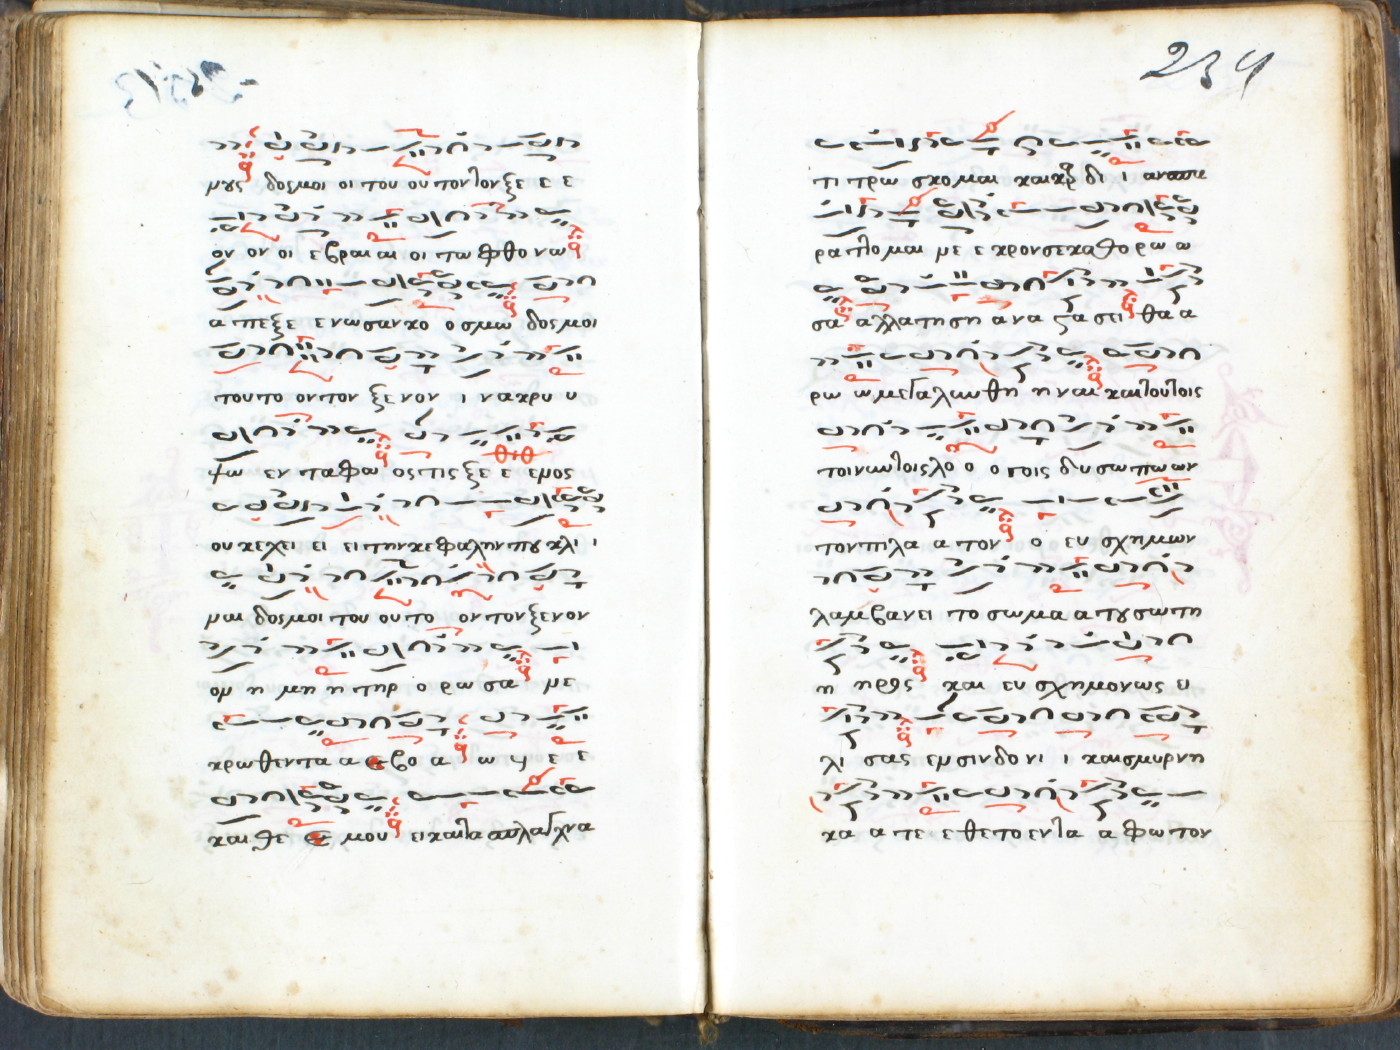 μȣς δοσμοι οι του ου τον τον ξε ε ε
ον ον οι εβραι αι οι τω φθο νω
α πεξε ε νω σαν κο ο σμω δοσμοι
του το ον τον ξε νον ι να κρυ υ
ψω εν τα φω ος τις ξε ε εμος
ουκ εχει ει ει την κεφαλην πȣ κλι ι
ναι δοσμοι του ου το ον τον ξε νον
ον η μη η τηρ ο ρω σα με
κρω θεν τα α ε βο α ω υ ε ε
και θε ε μου ει και τα σπλαγχνα
234
τι τρω σκομαι και κρ δι ι αν σπα
ρατ το μαι με ε κρον σε κα θο ρω ω
σα αλλα τη ση α να στα σει θα α
ρω ω μεγαλυν θη η ναι και τουτοις
τοινυν τοις λο ο ο γοις δυ σω πω ων
τον πιλα α τον ο ευ σχημων
λαμβανει το σωμα α τȣ σω τη
η ηρος και ευ σχημονως ει
λι σας εμ σινδο νι ι και σμυρνη
κα α τε ε θε το εν τα α φω τον